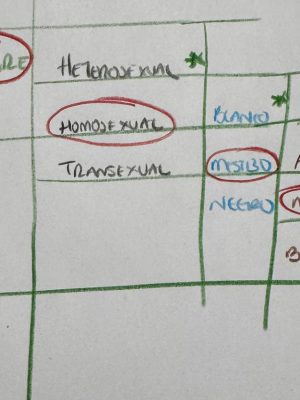 RE
HETEROSEXUAL
HOMOSEXUAL
TRANSEXUAL
BLANCO
MESTIZO
NEGRO